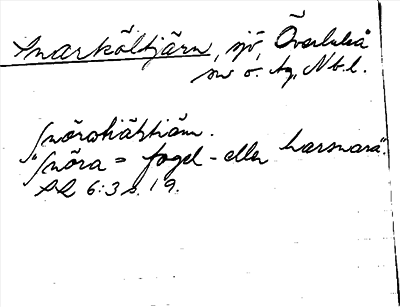 Snarköltjärn, sjö, Överluleå
sn o. tg, Nb. l.
Snöraköhtiäm.
"Snöra = fogel- eller harsnara".
AL 6:3 s. 19.